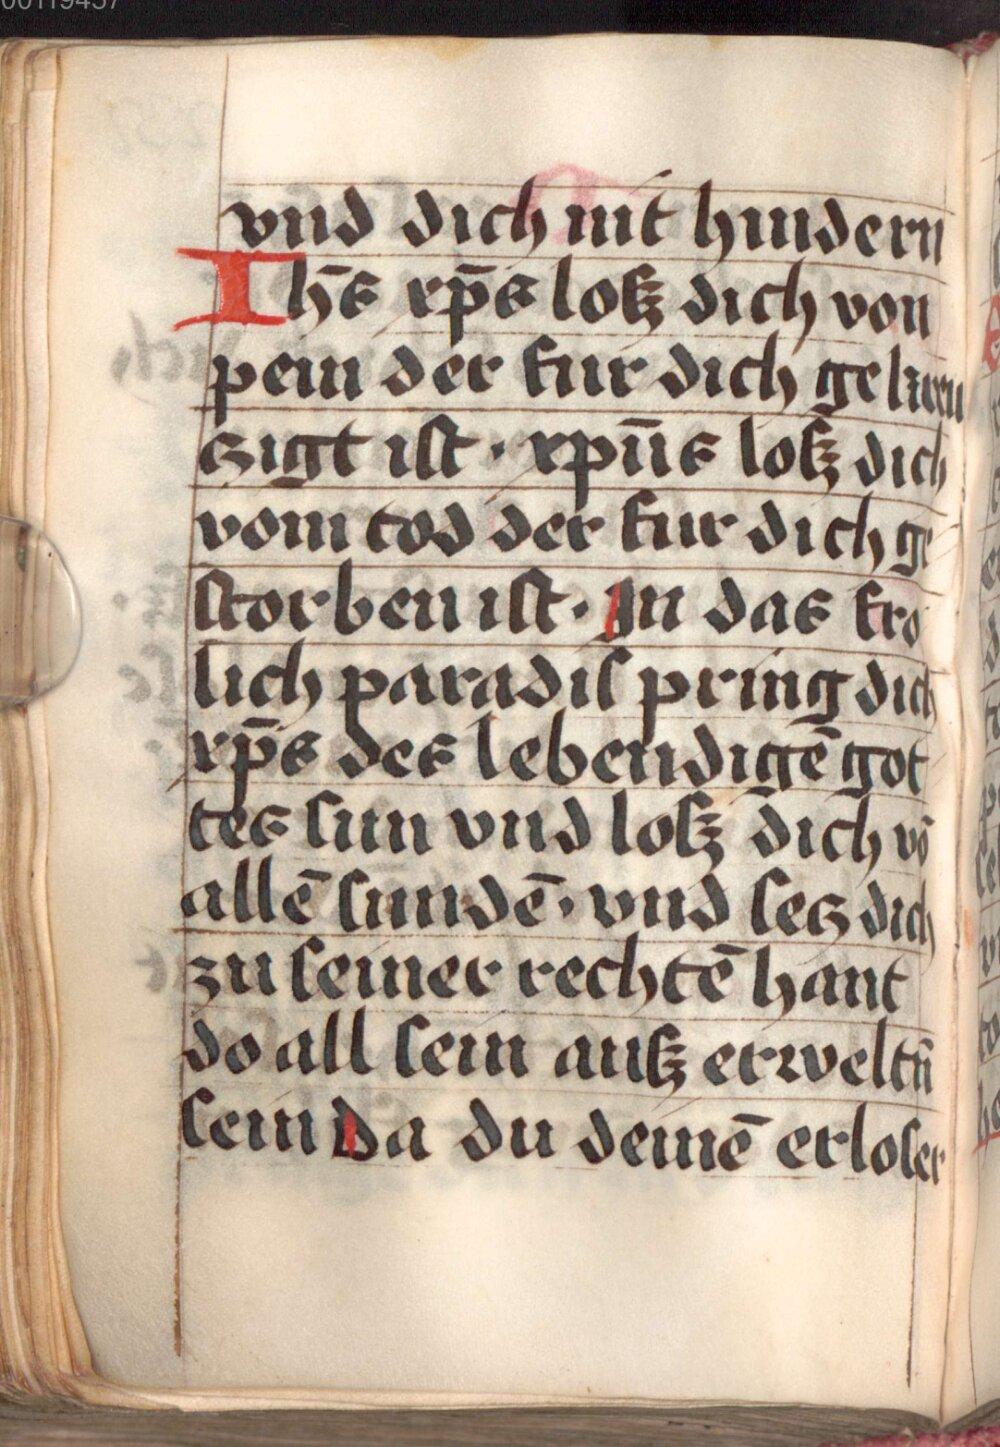 00119457
vnd dich nit hindern
Ihs̄ xp̄s losz dich von
pein der fur dich gekreu
czigt ist · xpūs losz dich
vom tod der fur dich ge
storben ist · In das fro
lich paradis pring dich
xp̄s des lebendigē got
tes sun vnd losz dich vō
allē sundē · vnd secz dich
zu seiner rechtē hant
do all sein ausz erweltn̄
sein Da du deinē erloser